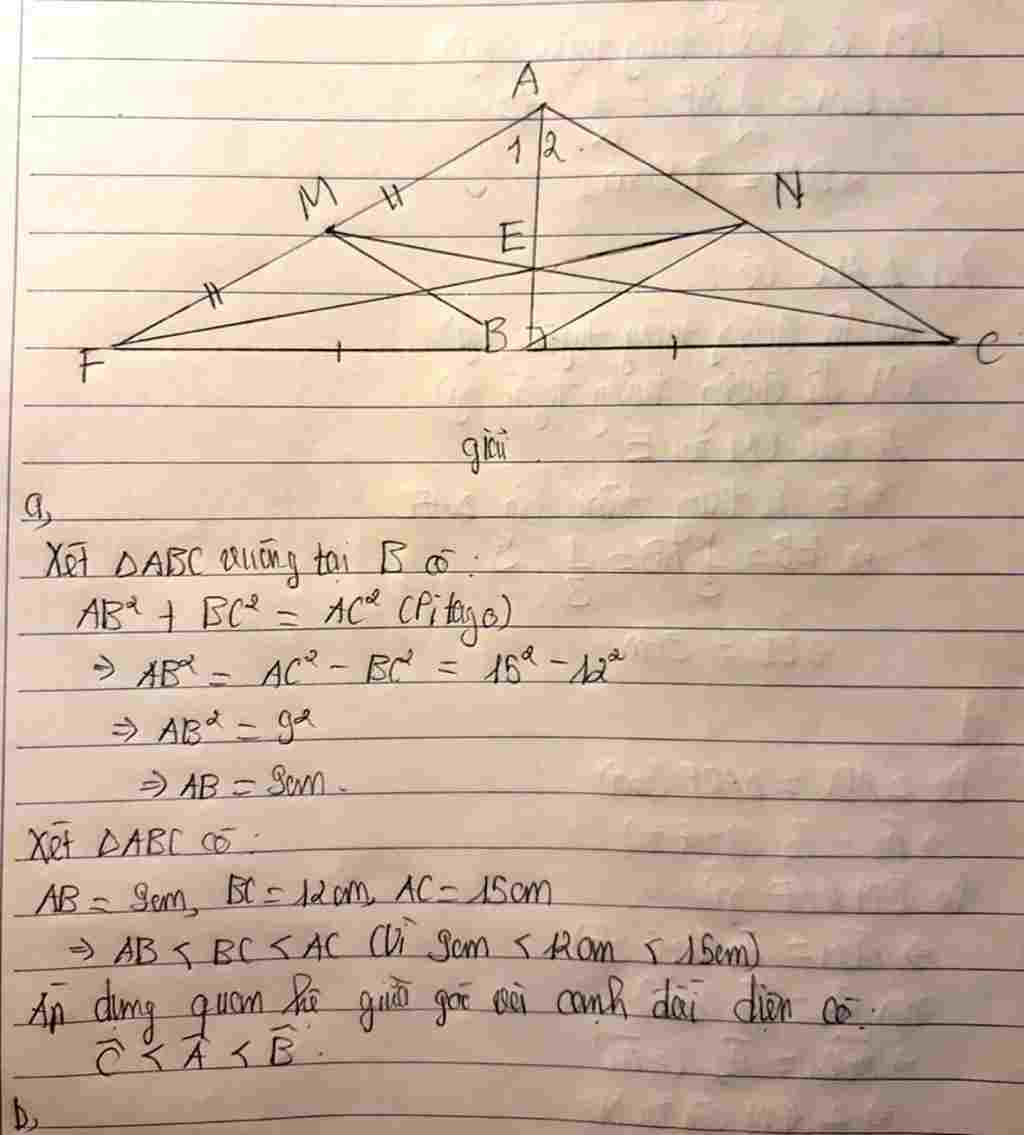 A
1 2
M
N
E
B
F
C
giải
a,
Xét ΔABC vuông tại B có:
AB² + BC² = AC² (Pitago)
⇒ AB² = AC² - BC² = 15² - 12²
⇒ AB² = 9²
⇒ AB = 9cm.
Xét ΔABC có:
AB = 9cm, BC = 12cm, AC = 15cm
⇒ AB < BC < AC (Vì 9cm < 12cm < 15cm)
Áp dụng quan hệ giữa góc với cạnh đối diện có:
Ĉ < Â < B̂.
b,